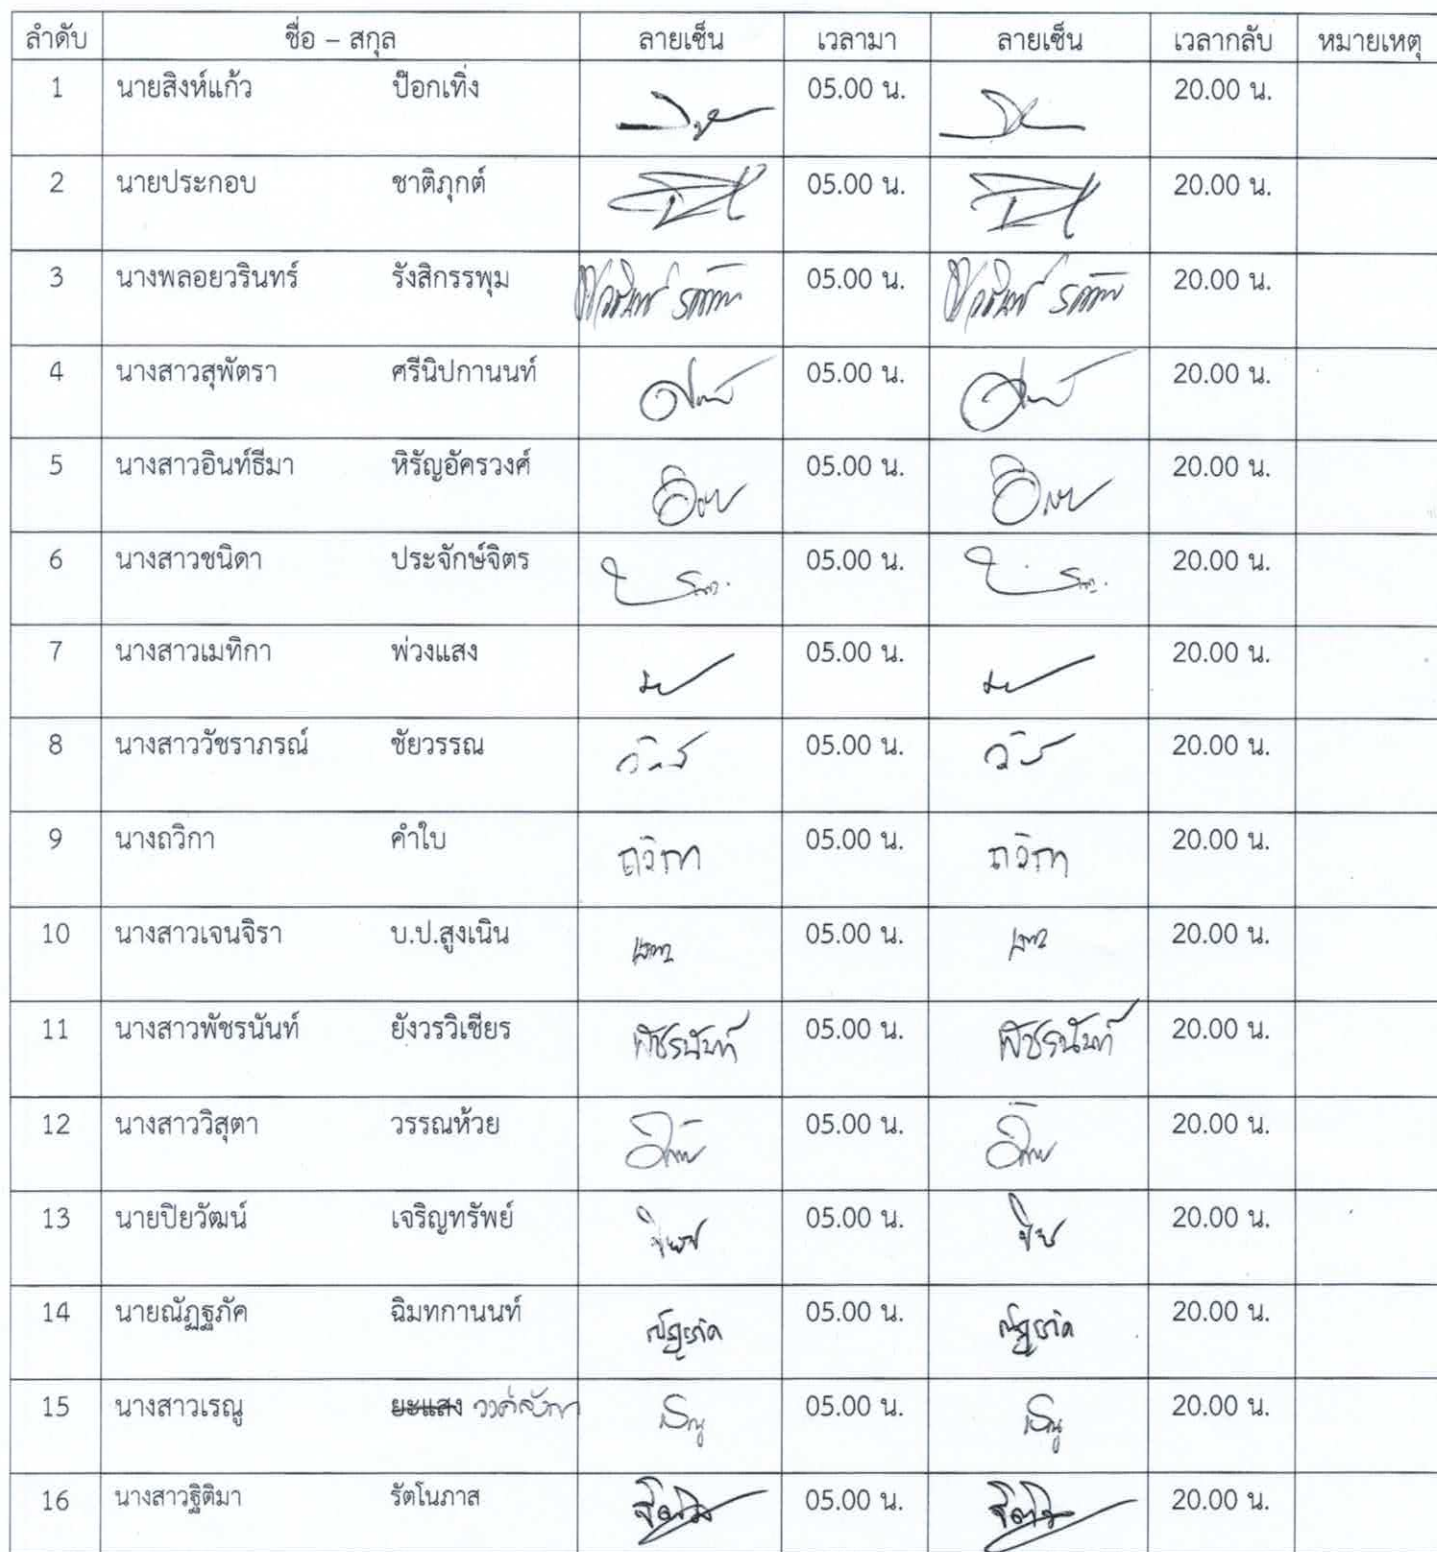 ลำดับ ชื่อ – สกุล ลายเซ็น เวลามา ลายเซ็น เวลากลับ หมายเหตุ
1 นายสิงห์แก้ว ป๊อกเทิ่ง 05.00 น. 20.00 น.
2 นายประกอบ ชาติภุกต์ 05.00 น. 20.00 น.
3 นางพลอยวรินทร์ รังสิกรรพุม 05.00 น. 20.00 น.
4 นางสาวสุพัตรา ศรีนิปกานนท์ 05.00 น. 20.00 น.
5 นางสาวอินท์ธีมา หิรัญอัครวงศ์ 05.00 น. 20.00 น.
6 นางสาวชนิดา ประจักษ์จิตร 05.00 น. 20.00 น.
7 นางสาวเมทิกา พ่วงแสง 05.00 น. 20.00 น.
8 นางสาววัชราภรณ์ ชัยวรรณ 05.00 น. 20.00 น.
9 นางถวิกา คำใบ ถวิกา 05.00 น. ถวิกา 20.00 น.
10 นางสาวเจนจิรา บ.ป.สูงเนิน 05.00 น. 20.00 น.
11 นางสาวพัชรนันท์ ยังวรวิเชียร พัชรนันท์ 05.00 น. พัชรนันท์ 20.00 น.
12 นางสาววิสุตา วรรณห้วย 05.00 น. 20.00 น.
13 นายปิยวัฒน์ เจริญทรัพย์ 05.00 น. 20.00 น.
14 นายณัฏฐภัค ฉิมทกานนท์ ณัฏฐภัค 05.00 น. ณัฏฐภัค 20.00 น.
15 นางสาวเรณู ยะแสง เรณู 05.00 น. เรณู 20.00 น.
16 นางสาวฐิติมา รัตโนภาส 05.00 น. 20.00 น.